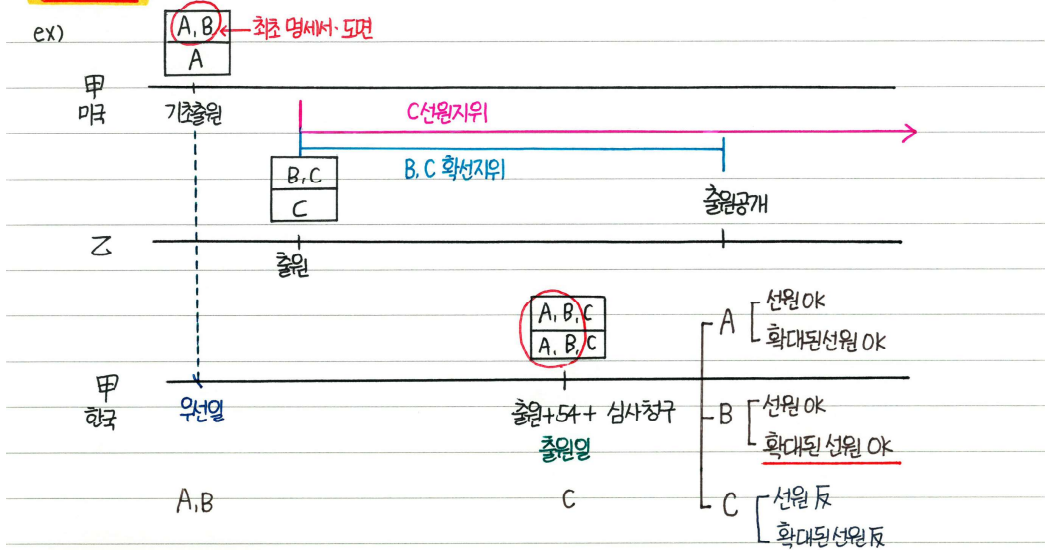 ex)
A, B ← 최초 명세서·도면
A
甲
미국
기초출원
C선원지위
B, C 확선지위
B, C
C
출원공개
乙
출원
A, B, C
A, B, C
甲
한국
우선일
출원+54+ 심사청구
출원일
A, B
C
A
선원 OK
확대된선원 OK
B
선원 OK
확대된 선원 OK
C
선원 反
확대된선원 反